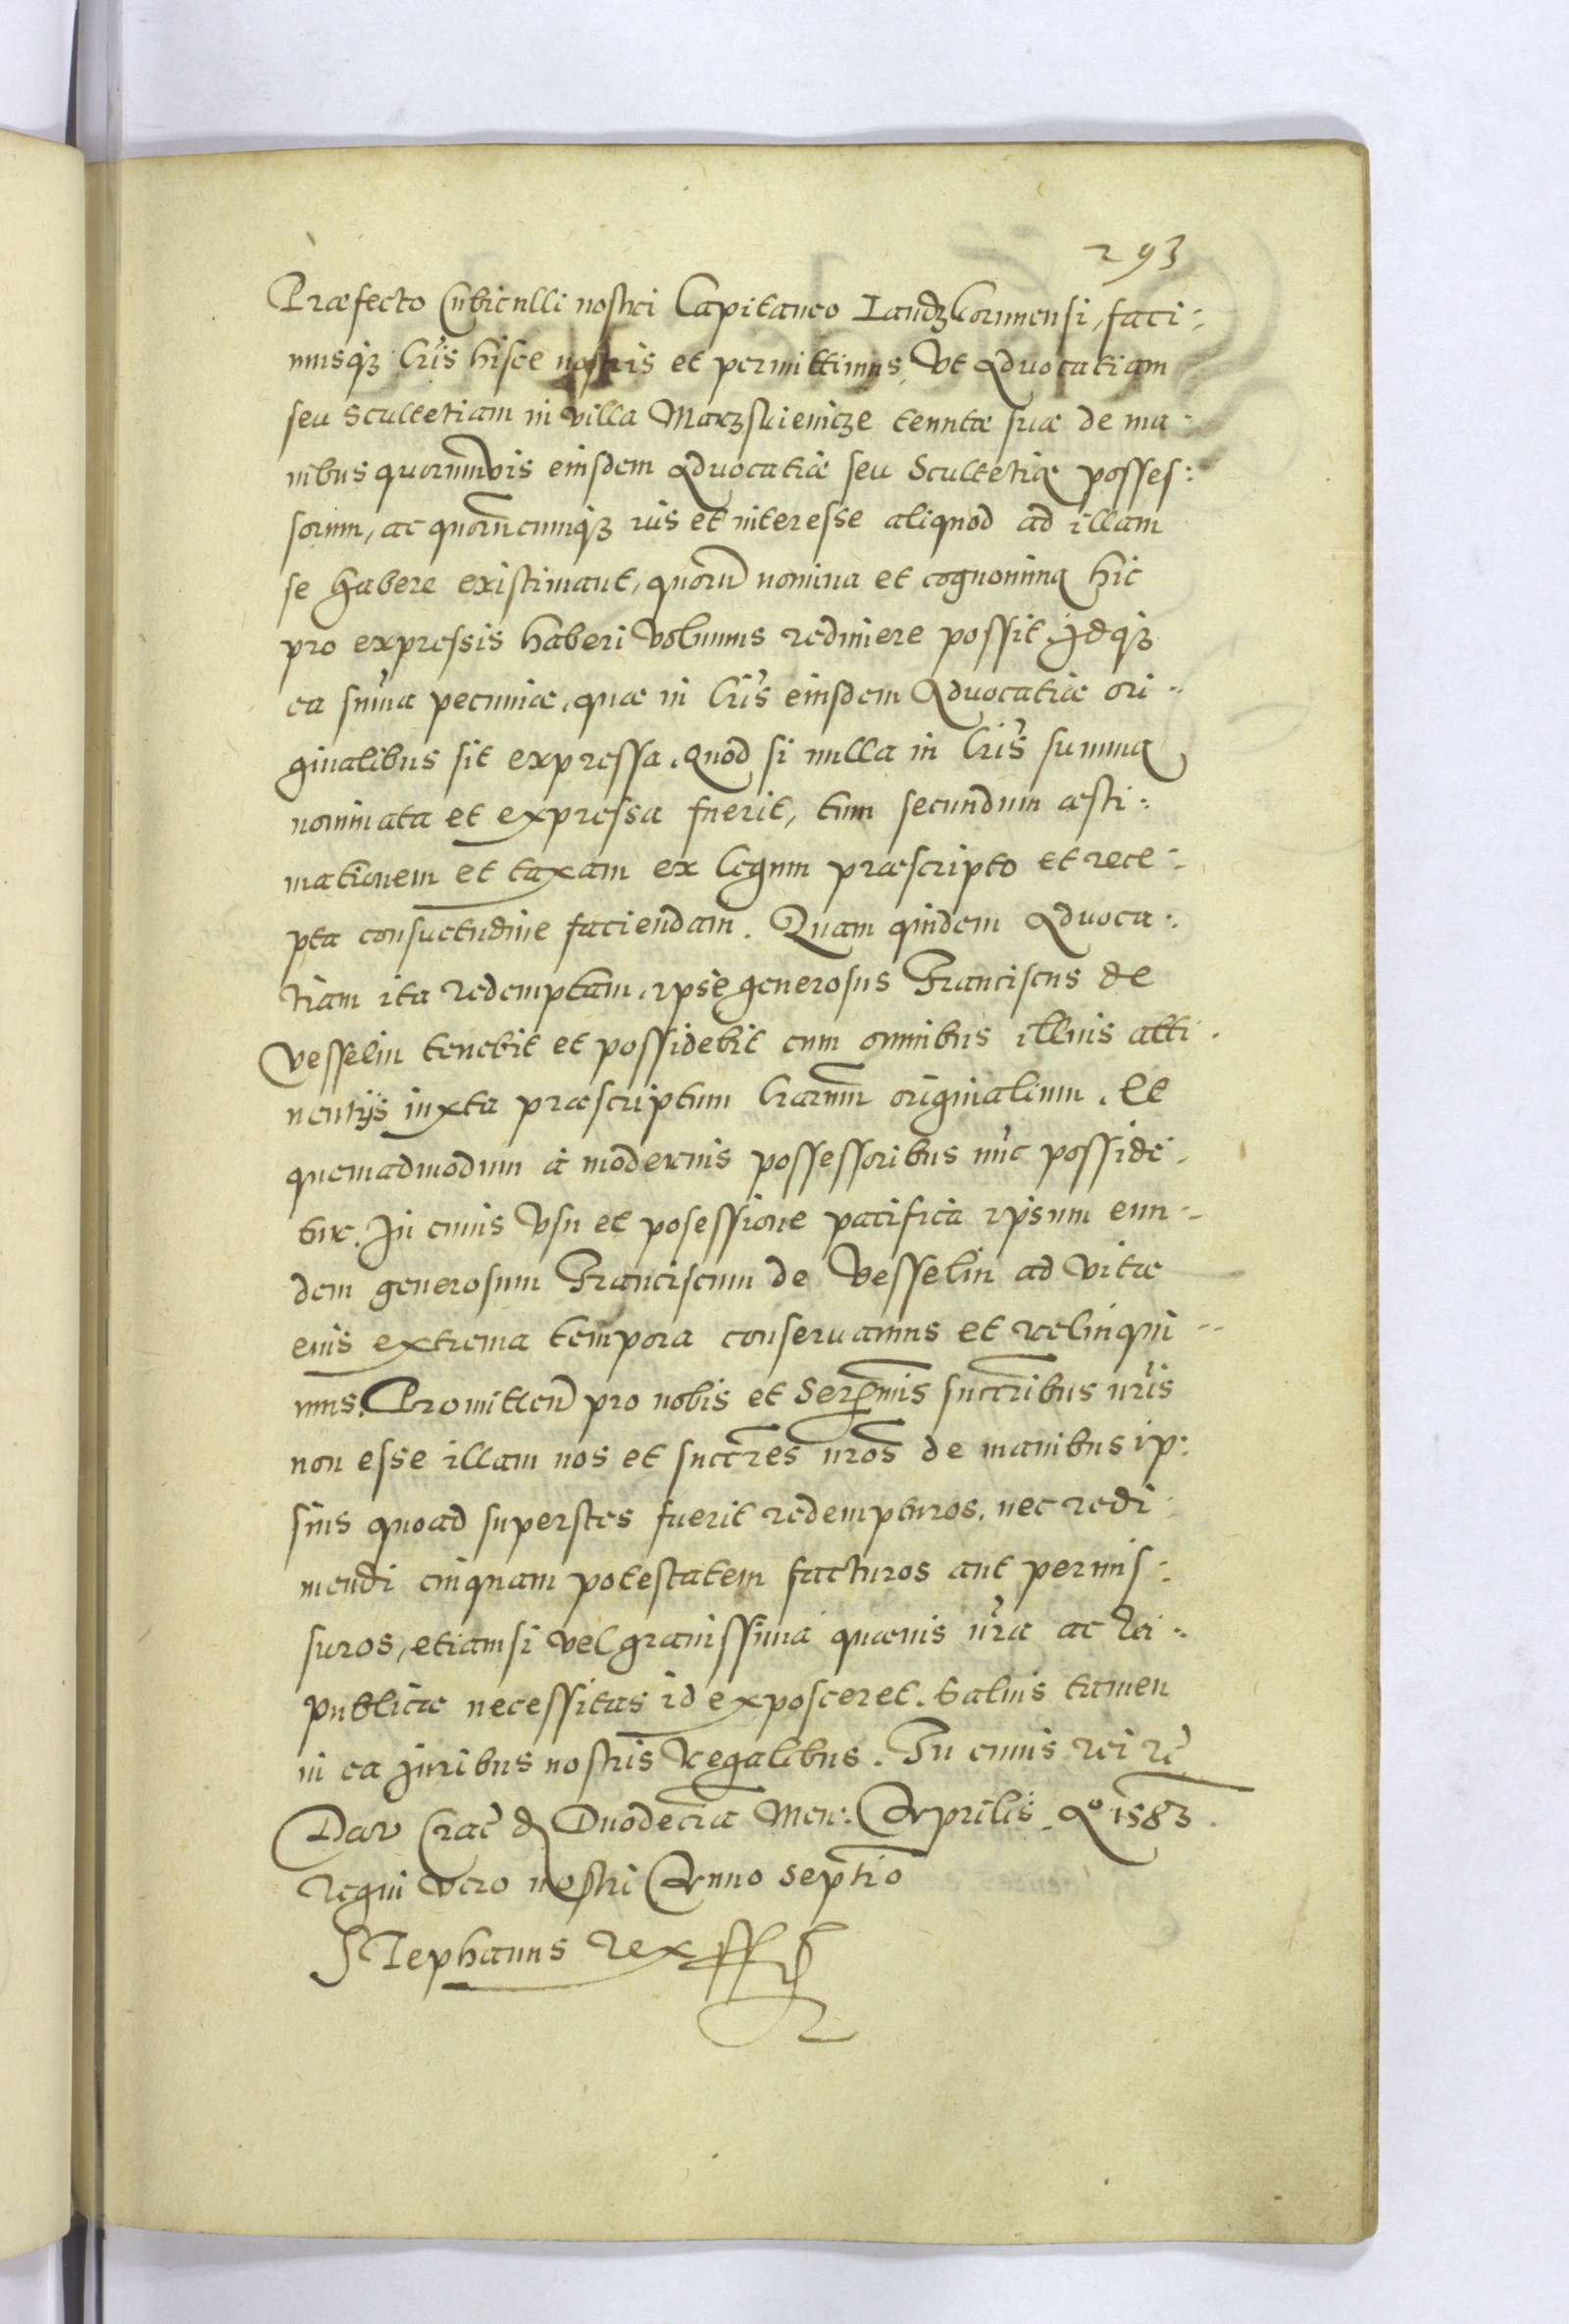 293
Præfecto Cubiculli nostri Capitaneo Landzkorunensi, faci:
musqʒ lr̃is hisce nostris et permittimus, Vt Aduocatiam
seu Scultetiam in villa Marzskienicze tenutæ suæ de ma:
nibus quorumvis eiusdem Aduocatiæ seu Scultetiæ posses:
sorum, ac quorũcumqʒ ius et interesse aliquod ad illam
se habere existimant, quorũ nomina et cognomina hic
pro expressis haberi volumus redimere possit, Idqʒ
ea sum̃a pecuniæ, quæ in lr̃is eiusdem Aduocatiæ ori:
ginalibus sit expressa. Quod si nulla in lr̃is summa
nominata et expressa fuerit, tum secundum æsti:
mationem et taxam ex legum præscripto et rece:
pta consuetudine faciendam. Quam quidem Aduoca:
tiam ita redemptam, ipse generosus Franciscus de
Vesselin tenebit et possidebit cum omnibus illius atti:
nentijs iuxta præscriptum lr̃arum originalium. Et
quemadmodum à modernis possessoribus nũc posside:
tur. In cuius vsu et posessione pacifica ipsum eun:
dem generosum Franciscum de Vesselin ad vitæ
eius extrema tempora conseruamus et relinqui:
mus. Promitten̄ pro nobis et Serēmis succr̃ibus nr̃is
non esse illam nos et succr̃es nr̃os de manibus ip:
sius quoad superstes fuerit redempturos, nec redi:
mendi cuiquam potestatem facturos aut permis:
suros, etiamsi vel grauissima quæuis nr̃a ac Rei:
publicæ necessitas id exposceret. Saluis tamen
in ea Iuribus nostris Regalibus. In cuius rei rē
Dat̄ Crac̄ d Duodecīa Men: Aprilis. Aº 1583.
Regni vero nostri Anno Septīo
Stephanus Rex ss